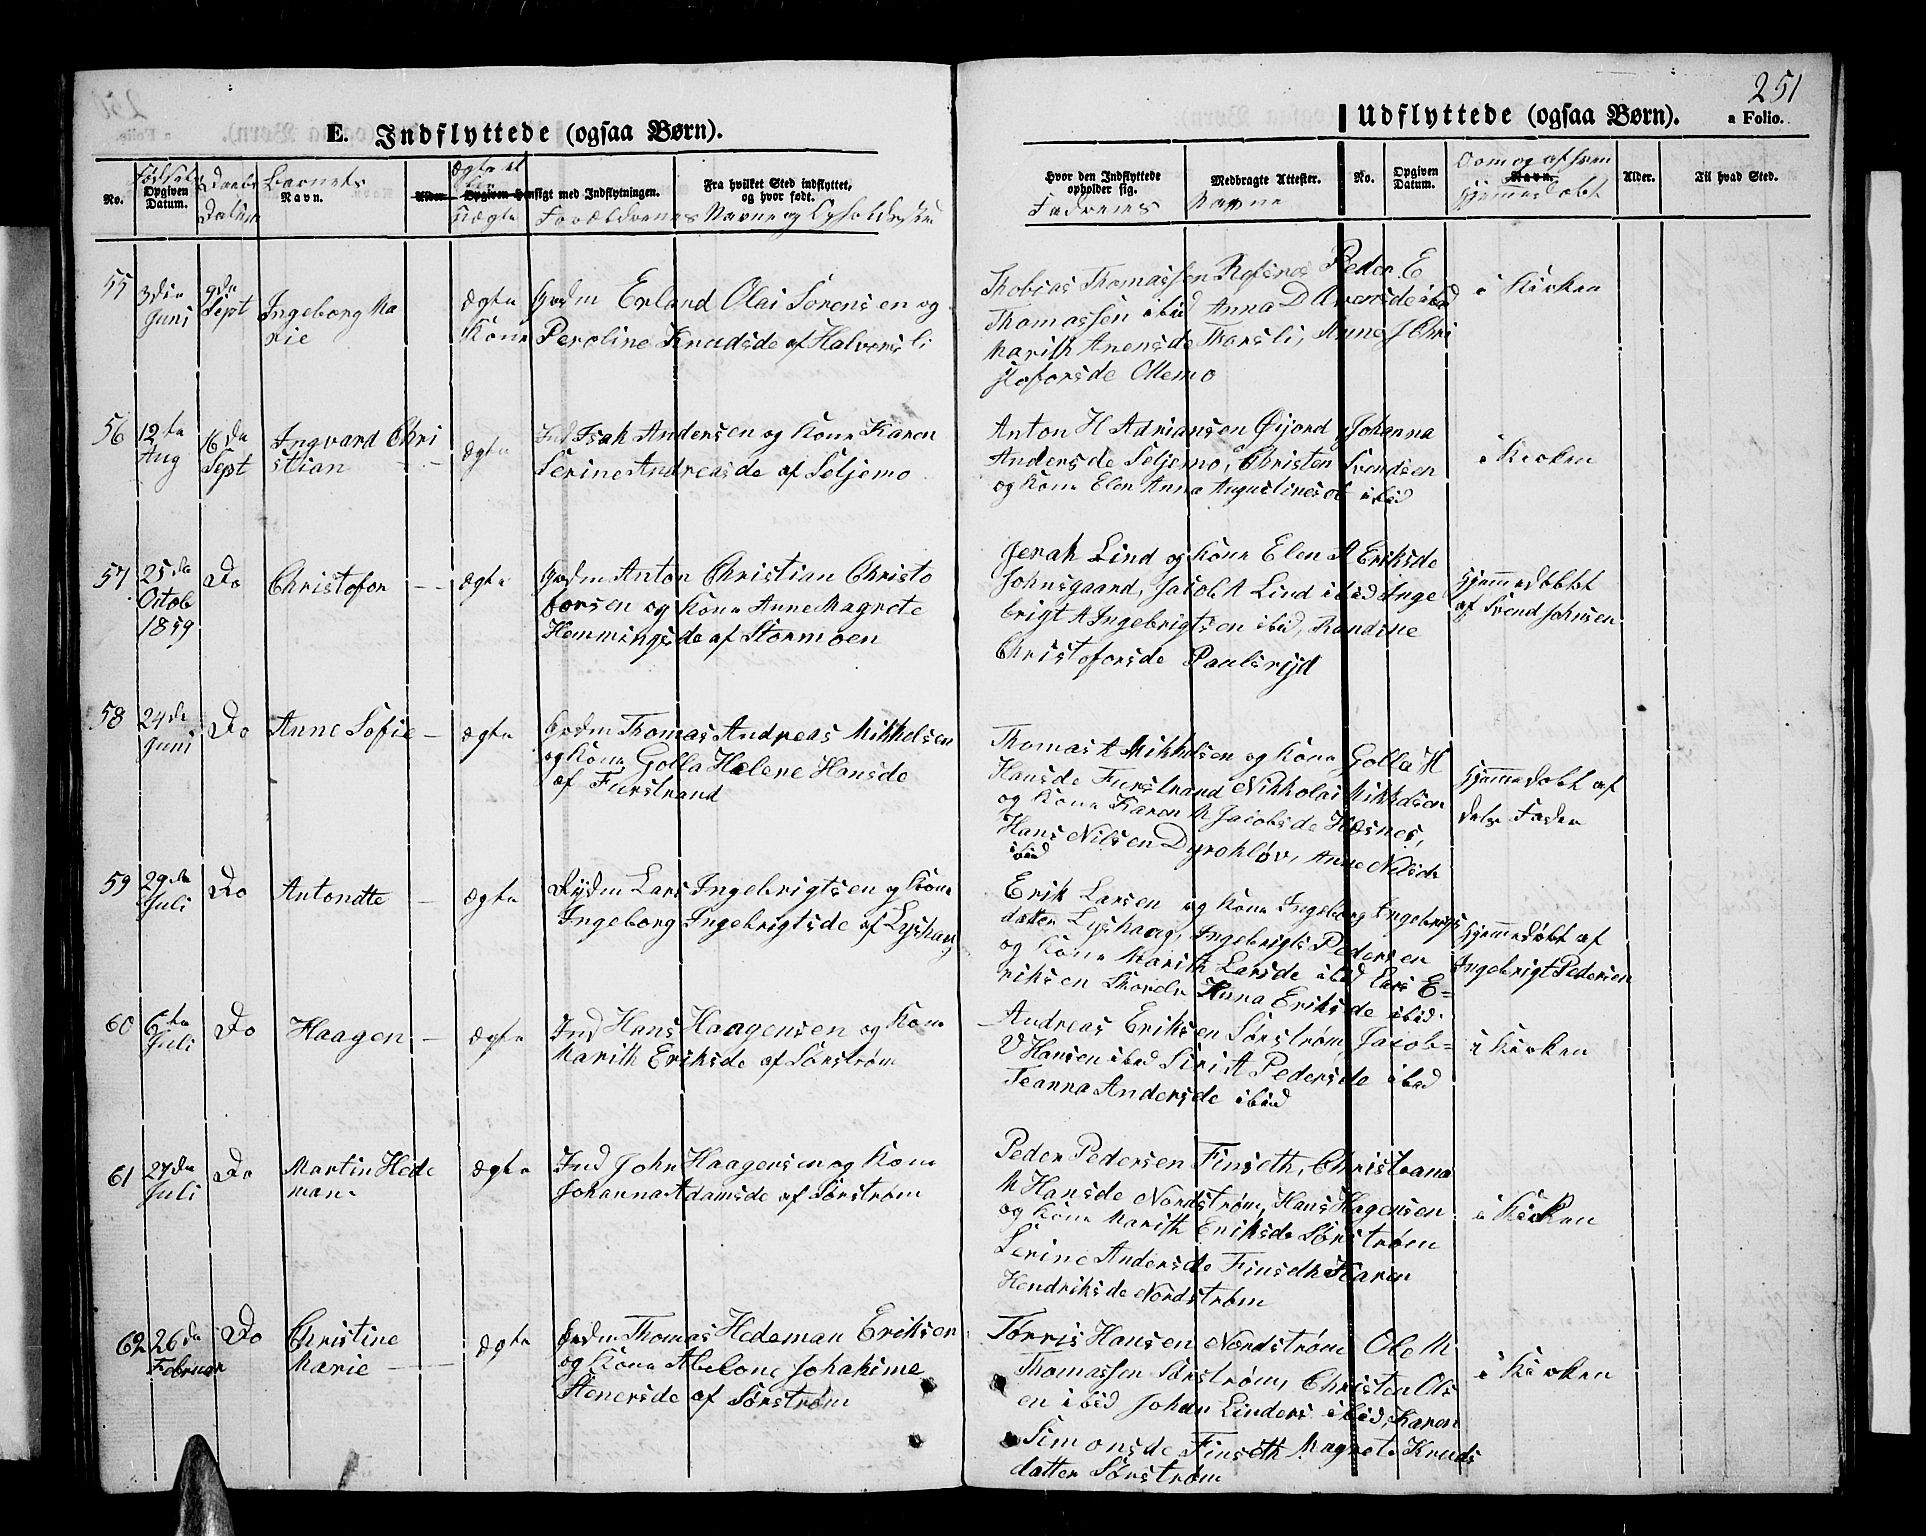 251
E. Indflyttede (ogsaa Børn).
Udflyttede (ogsaa Børn).
a Folio.
No.
Opgiven Datum.
Daabs Datum
Barnets
Navn.
Alder.
Ægte el
Uægte
Opgiven Hensigt med Indflytningen.
Fra hvilket Sted indflyttet, og hvor født.
Forældrenes Navne og
Hvor den Indflyttede opholder sig.
Medbragte Attester.
Faddernes Navne
No.
Opgiven Datum.
Om og af hvem
Navn.
hjemmedøbt
Alder.
Til hvad Sted.
55
3die Juni
9de Sept
Ingeborg Ma
rie
ægte
Gaardm Erland Olai Sørensen og
Kone Peroline Knudsdr af Halvorsli
Thobias Thomassen Rofsnes Peder E
Thomassen ibid Anna D Arensdr ibid
Marith Arensdr Thorsli, Anne J Chri
stofersdr Ollemo
i Kirken
56
12te Aug
16de Sept
Ingvard Chri
stian
ægte
Ind Isak Andersen og Kone Karen
Serine Andreasdr af Seljemo
Anton H Adriansen Øijord Johanna
Andersdr Seljemo, Christen Svendsen
og Kone Elen Anna Augustinusd ibid
i Kirken
57
25de Octob 1859
Do
Christofer
ægte
Gaardm Anton Christian Christo
fersen og Kone Anne Magrete
Hemmingsdr af Stormoen
Jerak Lind og Kone Elen A Eriksdr
Johnsgaard, Jacob A Lind ibid Inge
brigt A Ingebrigtsen ibid, Randine
Christofersdr Paulsryd
Hjemmedøbt
af Svend Johnsen
58
24de Juni
Do
Anne Sofie
ægte
Gaardm Thomas Andreas Mikkelsen
og Kone Golla Helene Hansdr
af Furstrand
Thomas A Mikkelsen og Kone Golla H
Hansdr Furstrand Nikkolai Mikkelsen
og Kone Karen M Jacobsdr Høsnes,
Hans Nilsen Dyrohløv, Anne Nilsdr
ibid
Hjemmedøbt af
dets Fader
59
29de Juli
Do
Antonette
ægte
Rydm Lars Ingebrigtsen og Kone
Ingeborg Ingebrigtsdr af Lyshaug
Erik Larsen og Kone Ingeborg Ingebrigs
datter Lyshaug, Ingebrigt Pedersen
og Kone Marith Larsdr ibid Lars E=
riksen Anna Eriksdr ibid
Hjemmedøbt af
Ingebrigt Pedersen
60
6te Juli
Do
Haagen
ægte
Ind Hans Haagensen og Kone
Marith Eriksdr af Sørstrøm
Andreas Eriksen Sørstrøm, Jacob=
V Hansen ibid Siri A Pedersdr ibid
Jeanna Andersdr ibid
i Kirken
61
27de Juli
Do
Martin Hede
man
ægte
Ind John Haagensen og Kone
Johanna Adamsdr af Sørstrøm
Peder Pedersen Finseth, Christiana
M Hansdr Nordstrøm, Hans Hagensen
og Kone Marith Eriksdr Sørstrøm
Serine Andersdr Finseth Karen
Hendriksdr Nordstrøm
i Kirken
62
26de Februar
Do
Christine
Marie
ægte
Gaardm Thomas Hedeman Eriksen
og Kone Abelone Johakime
Stenersdr af Sørstrøm
Torris Hansen Nordstrøm Ole M
Thomassen Sørstrøm, Christen Ols
en ibid Johan Linders ibid, Karen
Simonsdr Finseth Magrete Knuds
datter Sørstrøm
i Kirken